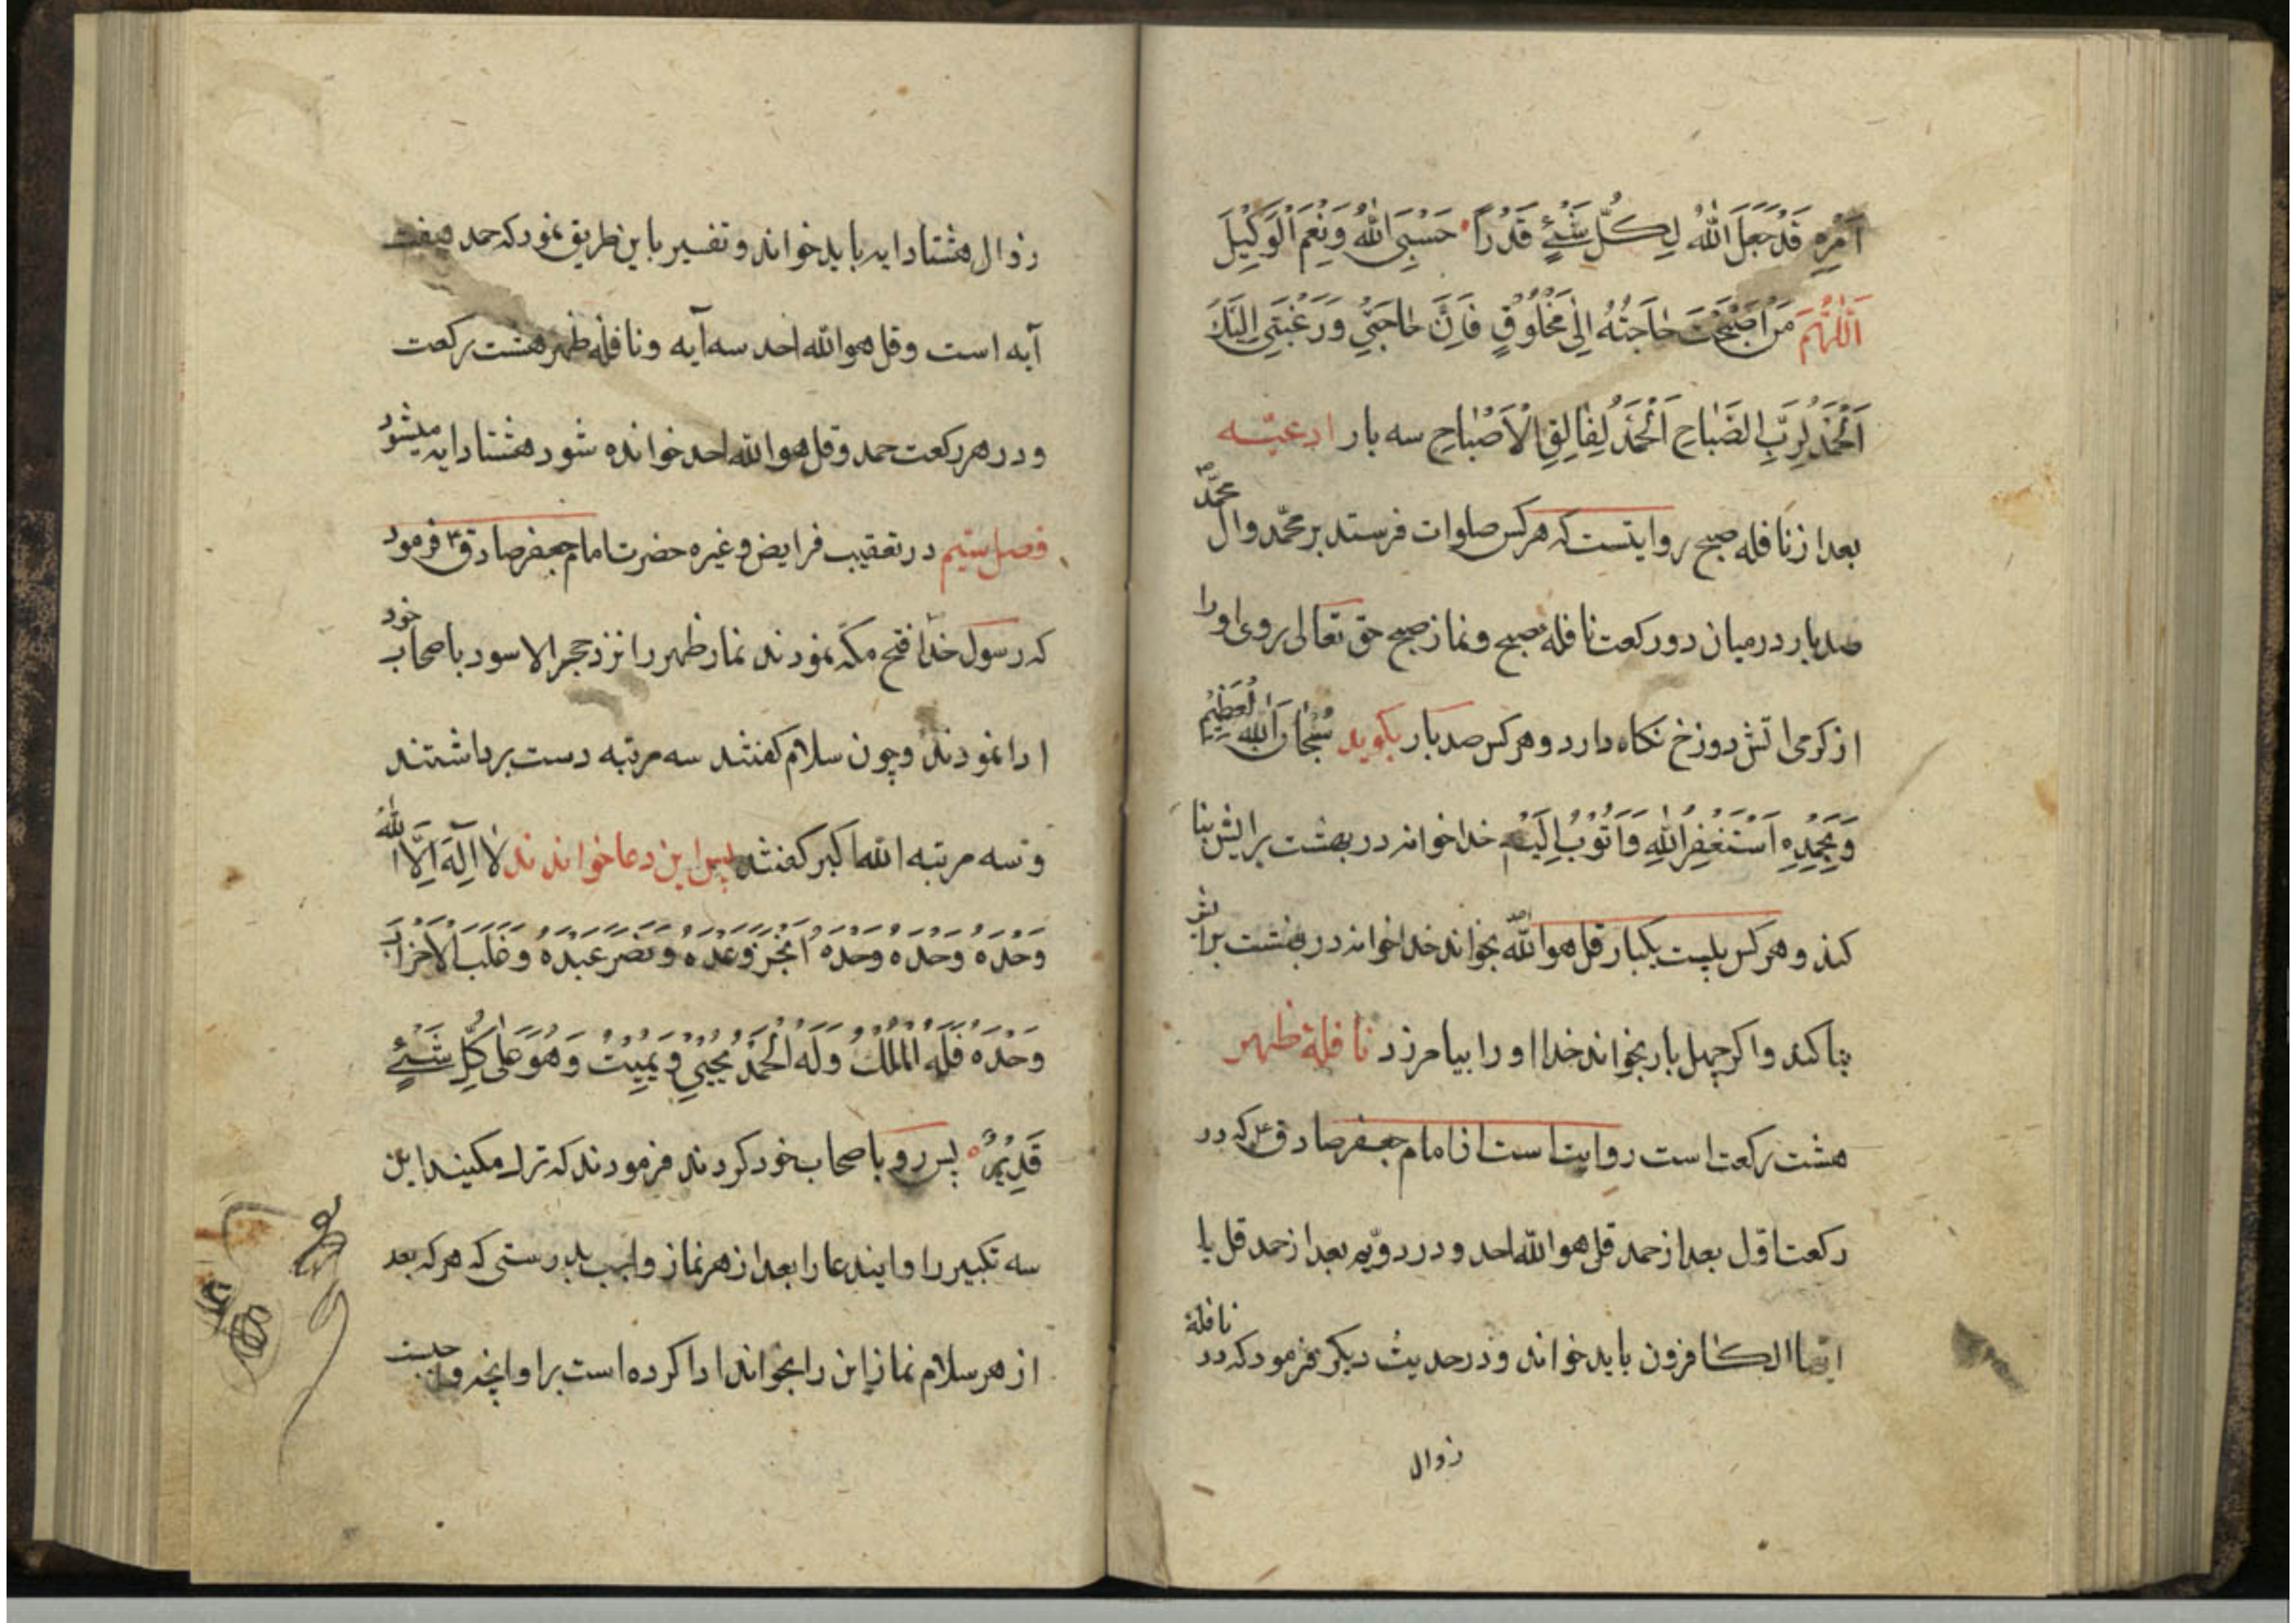 اَمْرِهِ قَدْ جَعَلَ اللّٰهُ لِكُلِّ شَيْءٍ قَدْراً حَسْبِیَ اللّٰهُ وَنِعْمَ الْوَكِيْلَ
اَللّٰهُمَّ مَنْ اَصْبَحَتْ حٰاجَتُهُ اِلٰى مَخْلُوْقٍ فَاِنَّ حٰاجَتِيْ وَرَغْبَتِي اِلَيْكَ
اَلْحَمْدُ لِرَبِّ الصَّبٰاحِ اَلْحَمْدُ لِفٰالِقِ الْاَصْبٰاحِ سه بار ادعیّه
بعد از نافله صبح روایتست که هر کس صلوات فرستد بر محمّد وال محمّد
صد بار در میان دو رکعت نافله صبح و نماز صبح حق تعالی روی او را
از کرمی اتش دوزخ نکاه دارد و هر کس صد بار بکوید سُبْحٰانَ اللّٰهِ الْعَظِيْمِ
وَبِحَمْدِهِ اَسْتَغْفِرُ اللّٰهِ وَاَتُوْبُ اِلَيْهِ خدا خوانه در بهشت برایش بنا
کند و هر کس بیست یکبار قل هو اللّه احد بخواند خدا خوانه در بهشت برایش
بنا کند و اکر چهل بار بخواند خدا او را بیامرزد نافلهٔ ظهر
هشت رکعت است روایت است از امام جعفر صادق ع که در
رکعت اوّل بعد از حمد قل هو اللّه احد و در دویّم بعد از حمد قل یا
ایّها الکٰافرون باید خواند و در حدیث دیکر فرمود که در نافلهٔ
زوال
زوال هشتاد ایه باید خواند و تفسیر باین طریق نمود که حمد هفت
آیه است و قل هو اللّه احد سه آیه و نافله ظهر هشت رکعت
و در هر رکعت حمد و قل هو اللّه احد خوانده شود هشتاد ایه میشود
فصل ستیم در تعقیب فرایض و غیره حضرت امام جعفر صادق ع فرمود
که رسول خدا فتح مکّه نمودند نماز ظهر را نزد حجر الاسود باصحاب خود
ادا نمودند و چون سلام کفتند سه مرتبه دست برداشتند
و سه مرتبه اللّه اکبر کفتند پس این دعا خواندند لٰا اِلٰهَ اِلَّا اللّٰهُ
وَحْدَهُ وَحْدَهُ وَحْدَهُ اَنْجَزَ وَعْدَهُ وَنَصَرَ عَبْدَهُ وَغَلَبَ الْاَحْزٰابَ
وَحْدَهُ فَلَهُ الْمُلْكُ وَلَهُ الْحَمْدُ يُحْيِيْ وَيُمِيْتُ وَهُوَ عَلٰى كُلِّ شَيْءٍ
قَدِيْرٌ پس رو باصحاب خود کردند فرمودند که ترک مکنید این
سه تکبیر را و ایندعا را بعد از هر نماز واجب بدرستی که هر که بعد
از هر سلام نماز این را بخواند ادا کرده است بر او انچه واجبست